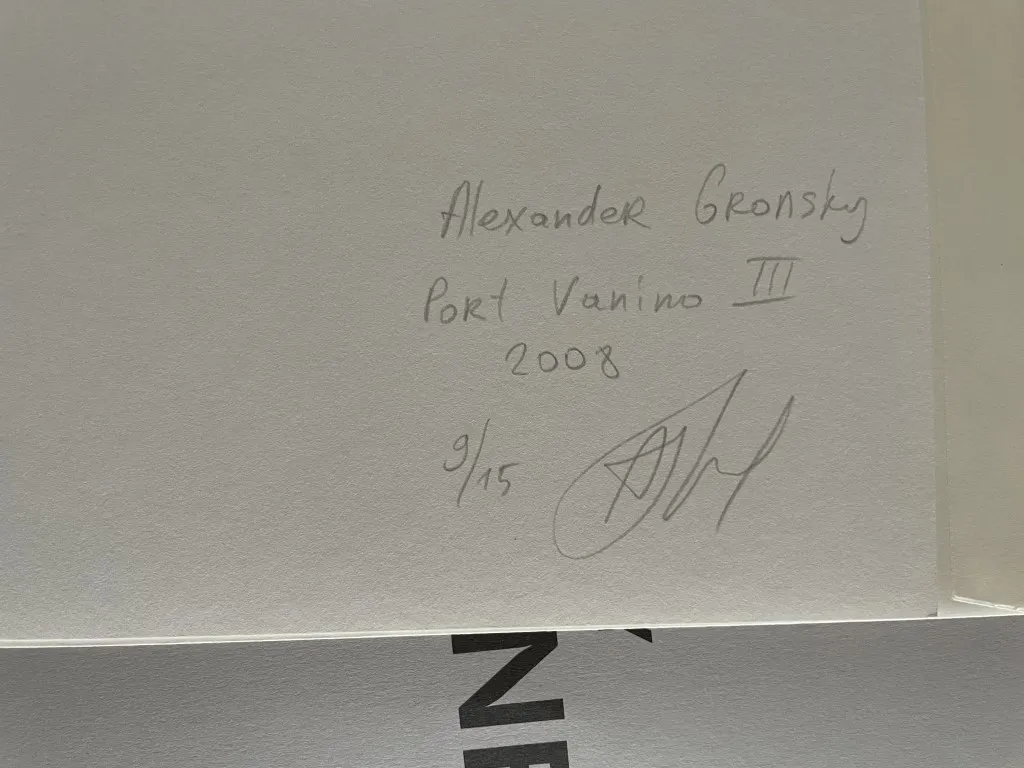 Alexander Gronsky
Port Vanino III
2008
9/15
NE